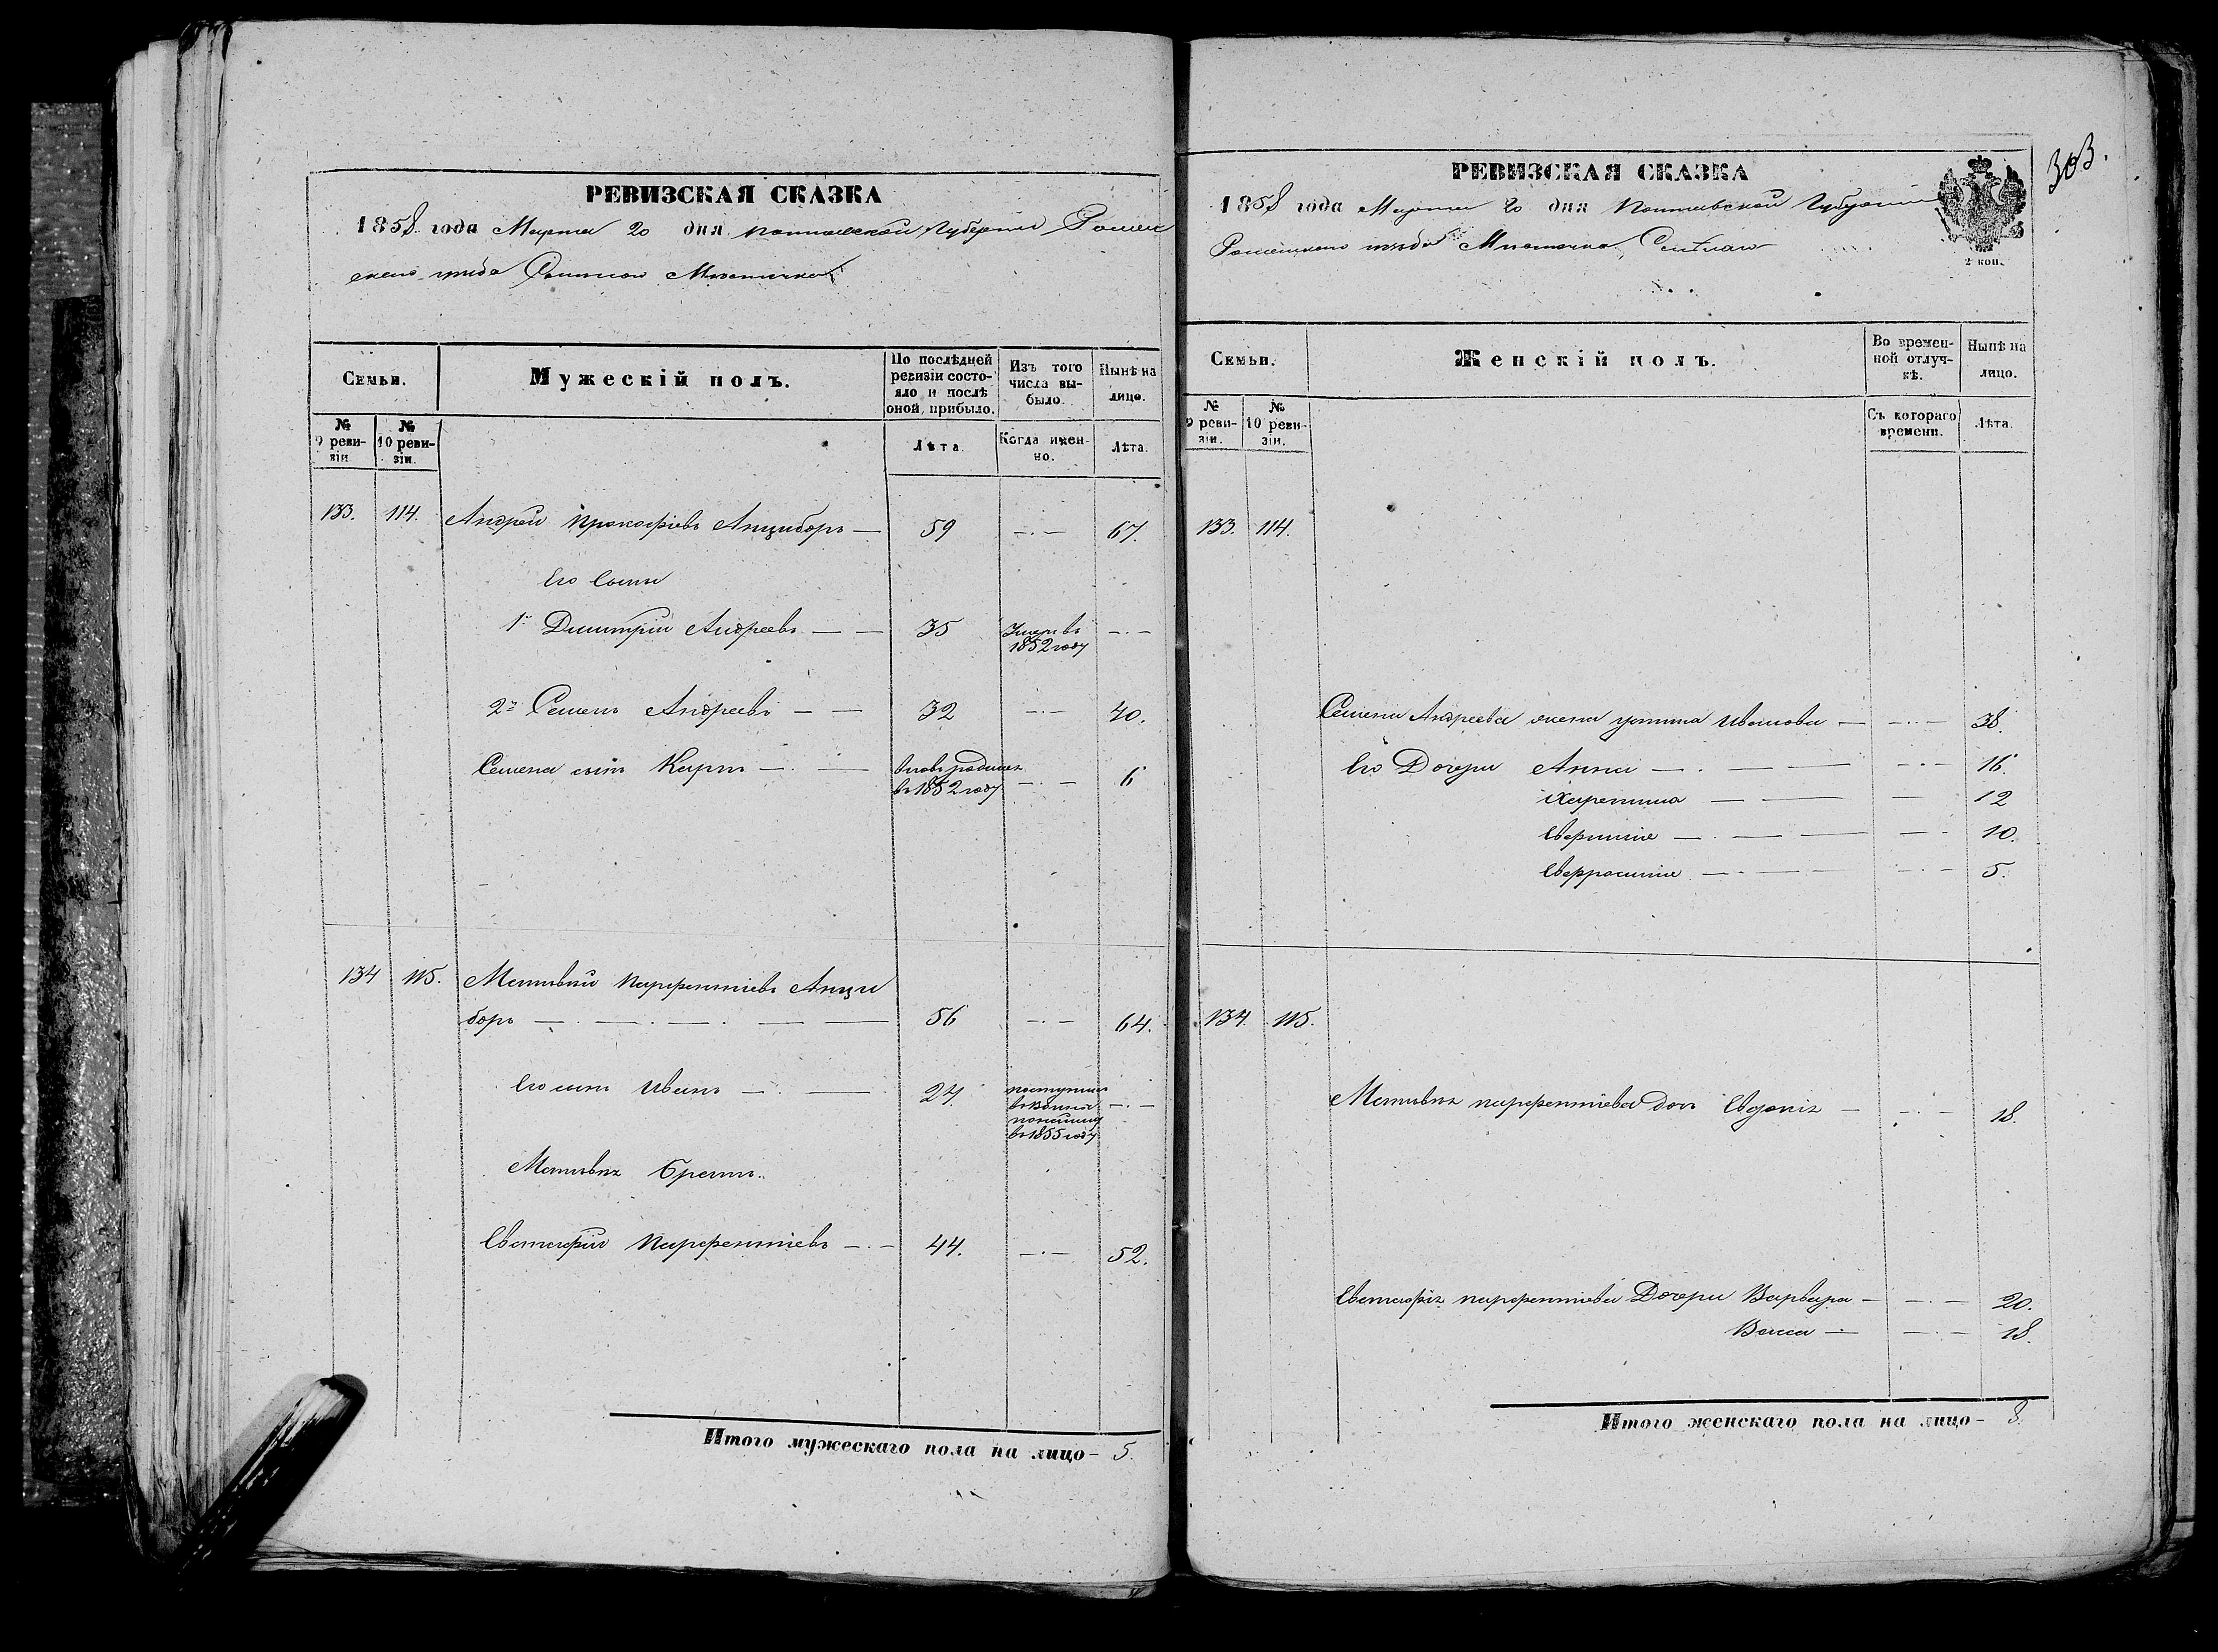 РЕВИЗСКАЯ СКАЗКА
1858 года Марта 20 дня Полтавской Губернии Ромен
скаго уезда Местечка
Семьи.
Мужескій полъ.
По послѣдней ревизіи состояло и послѣ оной прибыло.
Изъ того числа выбыло.
Нынѣ на лицо.
№ 9 ревизіи
№ 10 ревизіи.
Лѣта.
Когда именно.
Лѣта.
133. 114. Андрей Прокофіевъ Анциборъ — 59 —·— 67.
Его Сыны
1й Димитрій Андреевъ — — 35 Умеръ въ 1852 году —·—
2й Семенъ Андреевъ — — 32 —·— 40.
Семена сынъ Карпъ —·— вновь родился въ 1852 году —·— 6
134 115. Матвѣй Парфентіевъ Анци
боръ —·—·—·— — 56 —·— 64.
Его сынъ Иванъ —·— 24. поступил в 1855 году —·—
Матвѣя Братъ.
Евстафій Парфентіевъ —·— 44. —·— 52.
Итого мужескаго пола на лицо — 5.
303.
РЕВИЗСКАЯ СКАЗКА
1858 года Марта 20 дня Полтавской Губерніи
Роменскаго уезда Местечка
2 коп.
Семьи.
Женскій полъ.
Во временной отлучкѣ.
Нынѣ на лицо.
№ 9 ревизіи.
№ 10 ревизіи.
Съ котораго времени.
Лѣта.
133. 114.
Семена Андреева жена Устина Иванова — —·— 38.
Его Дочери Анна —·— — —·— 16.
Харитина — — — 12
— 10.
Евфросинія —·— — —·— 5.
134. 115.
Матвѣя Парфентіева дочь Евдокія — —·— 18.
Евстафія Парфентіева Дочери Варвара — —·— 20.
Васса — —·— 18.
Итого женскаго пола на лицо — 8.